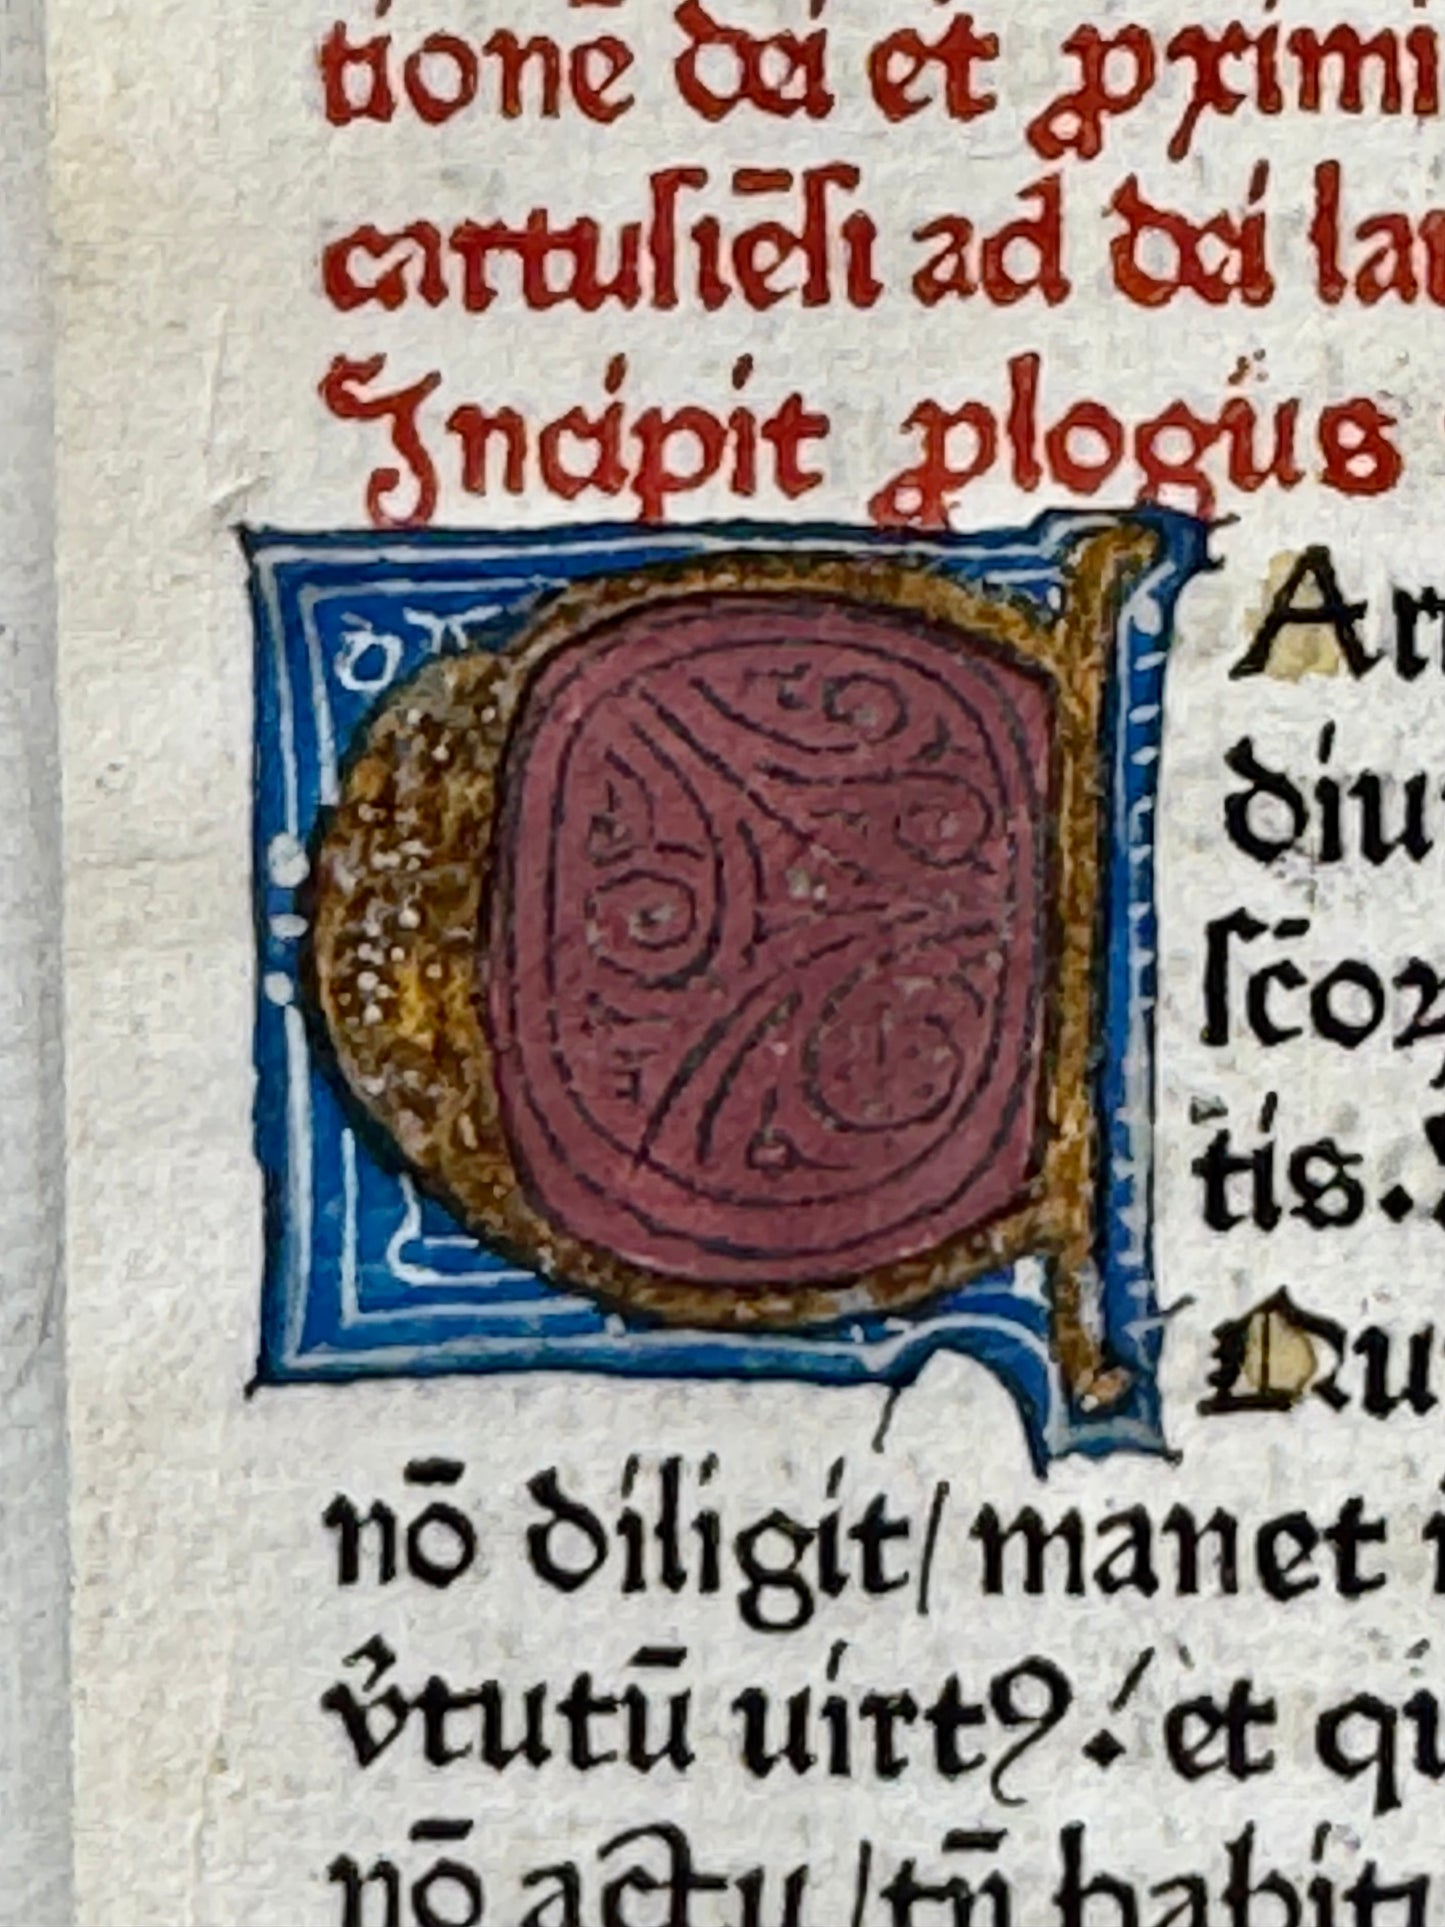 tionē dei et ꝓximi
cartusiēsi ad dei lau
Incipit ꝓlogus
C Ari
diui
scōr
tis.
Nu
nō diligit/ manet i
v̓tutū uirtꝯ: et qu
nō actu /tn̄ habitu